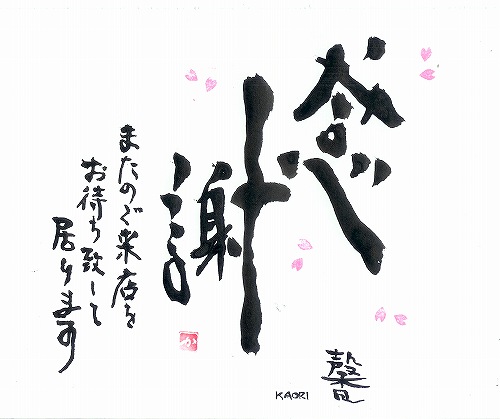 感謝
またのご来店を
お待ち致して
居ります
馨
KAORI
か